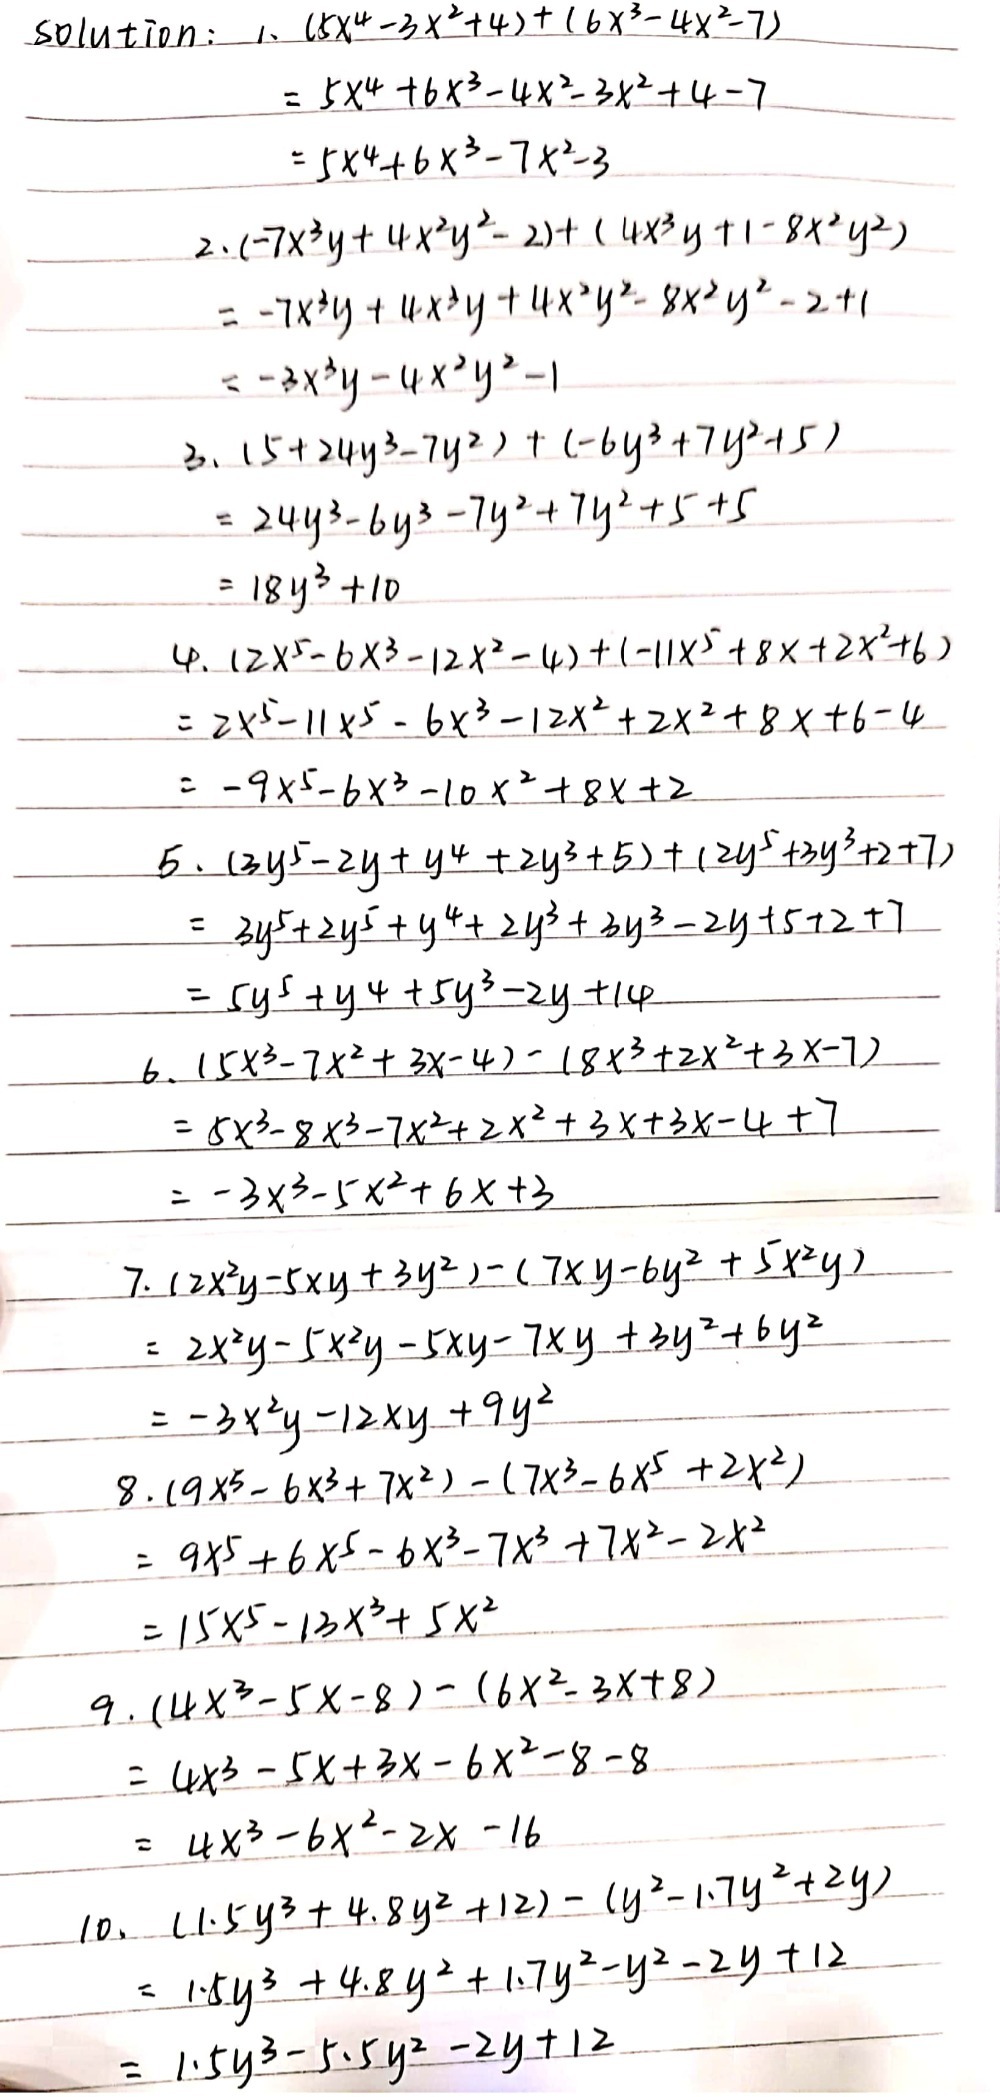 solution: 1. (5x⁴-3x²+4)+(6x³-4x²-7)
= 5x⁴+6x³-4x²-3x²+4-7
= 5x⁴+6x³-7x²-3
2. (-7x³y+4x²y²-2)+(4x³y+1-8x²y²)
= -7x³y+4x³y+4x²y²-8x²y²-2+1
= -3x³y-4x²y²-1
3. (5+24y³-7y²)+(-6y³+7y²+5)
= 24y³-6y³-7y²+7y²+5+5
= 18y³+10
4. (2x⁵-6x³-12x²-4)+(-11x⁵+8x+2x²+6)
= 2x⁵-11x⁵-6x³-12x²+2x²+8x+6-4
= -9x⁵-6x³-10x²+8x+2
5. (3y⁵-2y+y⁴+2y³+5)+(2y⁵+3y³+2+7)
= 3y⁵+2y⁵+y⁴+2y³+3y³-2y+5+2+7
= 5y⁵+y⁴+5y³-2y+14
6. (5x³-7x²+3x-4)-(8x³+2x²+3x-7)
= 5x³-8x³-7x²+2x²+3x+3x-4+7
= -3x³-5x²+6x+3
7. (2x²y-5xy+3y²)-(7xy-6y²+5x²y)
= 2x²y-5x²y-5xy-7xy+3y²+6y²
= -3x²y-12xy+9y²
8. (9x⁵-6x³+7x²)-(7x³-6x⁵+2x²)
= 9x⁵+6x⁵-6x³-7x³+7x²-2x²
= 15x⁵-13x³+5x²
9. (4x³-5x-8)-(6x²-3x+8)
= 4x³-5x+3x-6x²-8-8
= 4x³-6x²-2x-16
10. (1.5y³+4.8y²+12)-(y²-1.7y²+2y)
= 1.5y³+4.8y²+1.7y²-y²-2y+12
= 1.5y³-5.5y²-2y+12